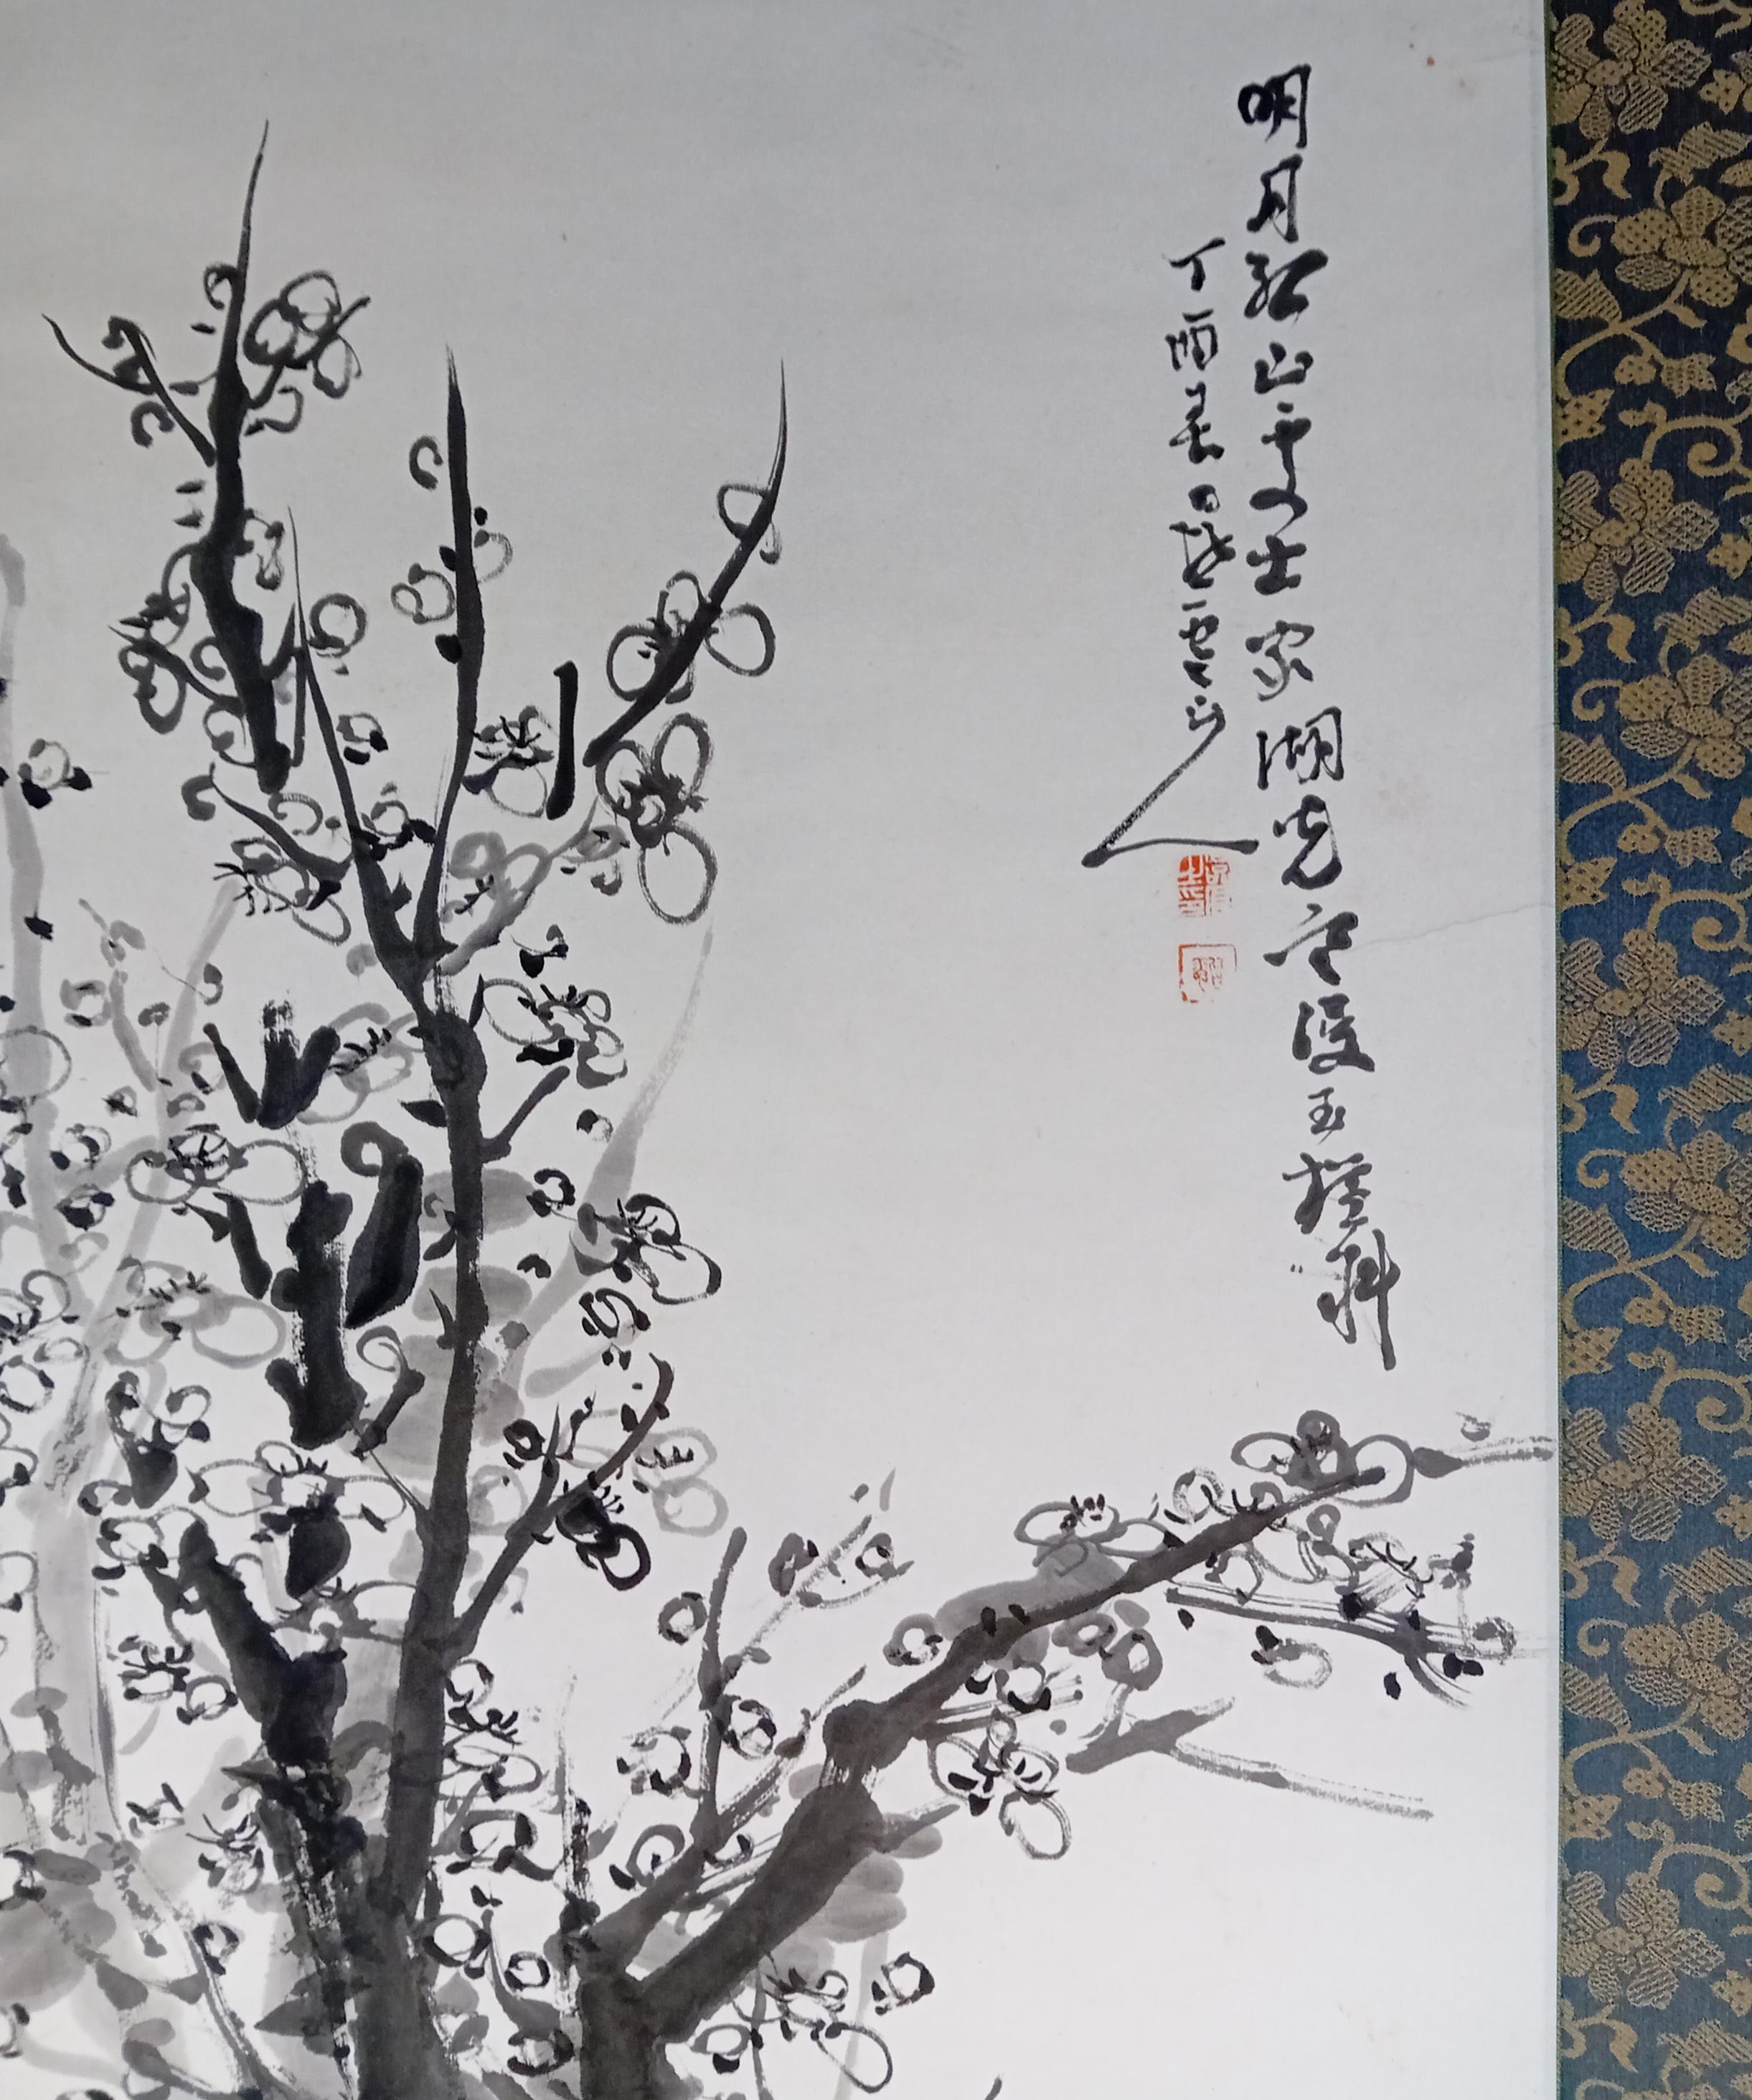 明月孤山處士家湖光寒浸玉橫斜
丁酉春日